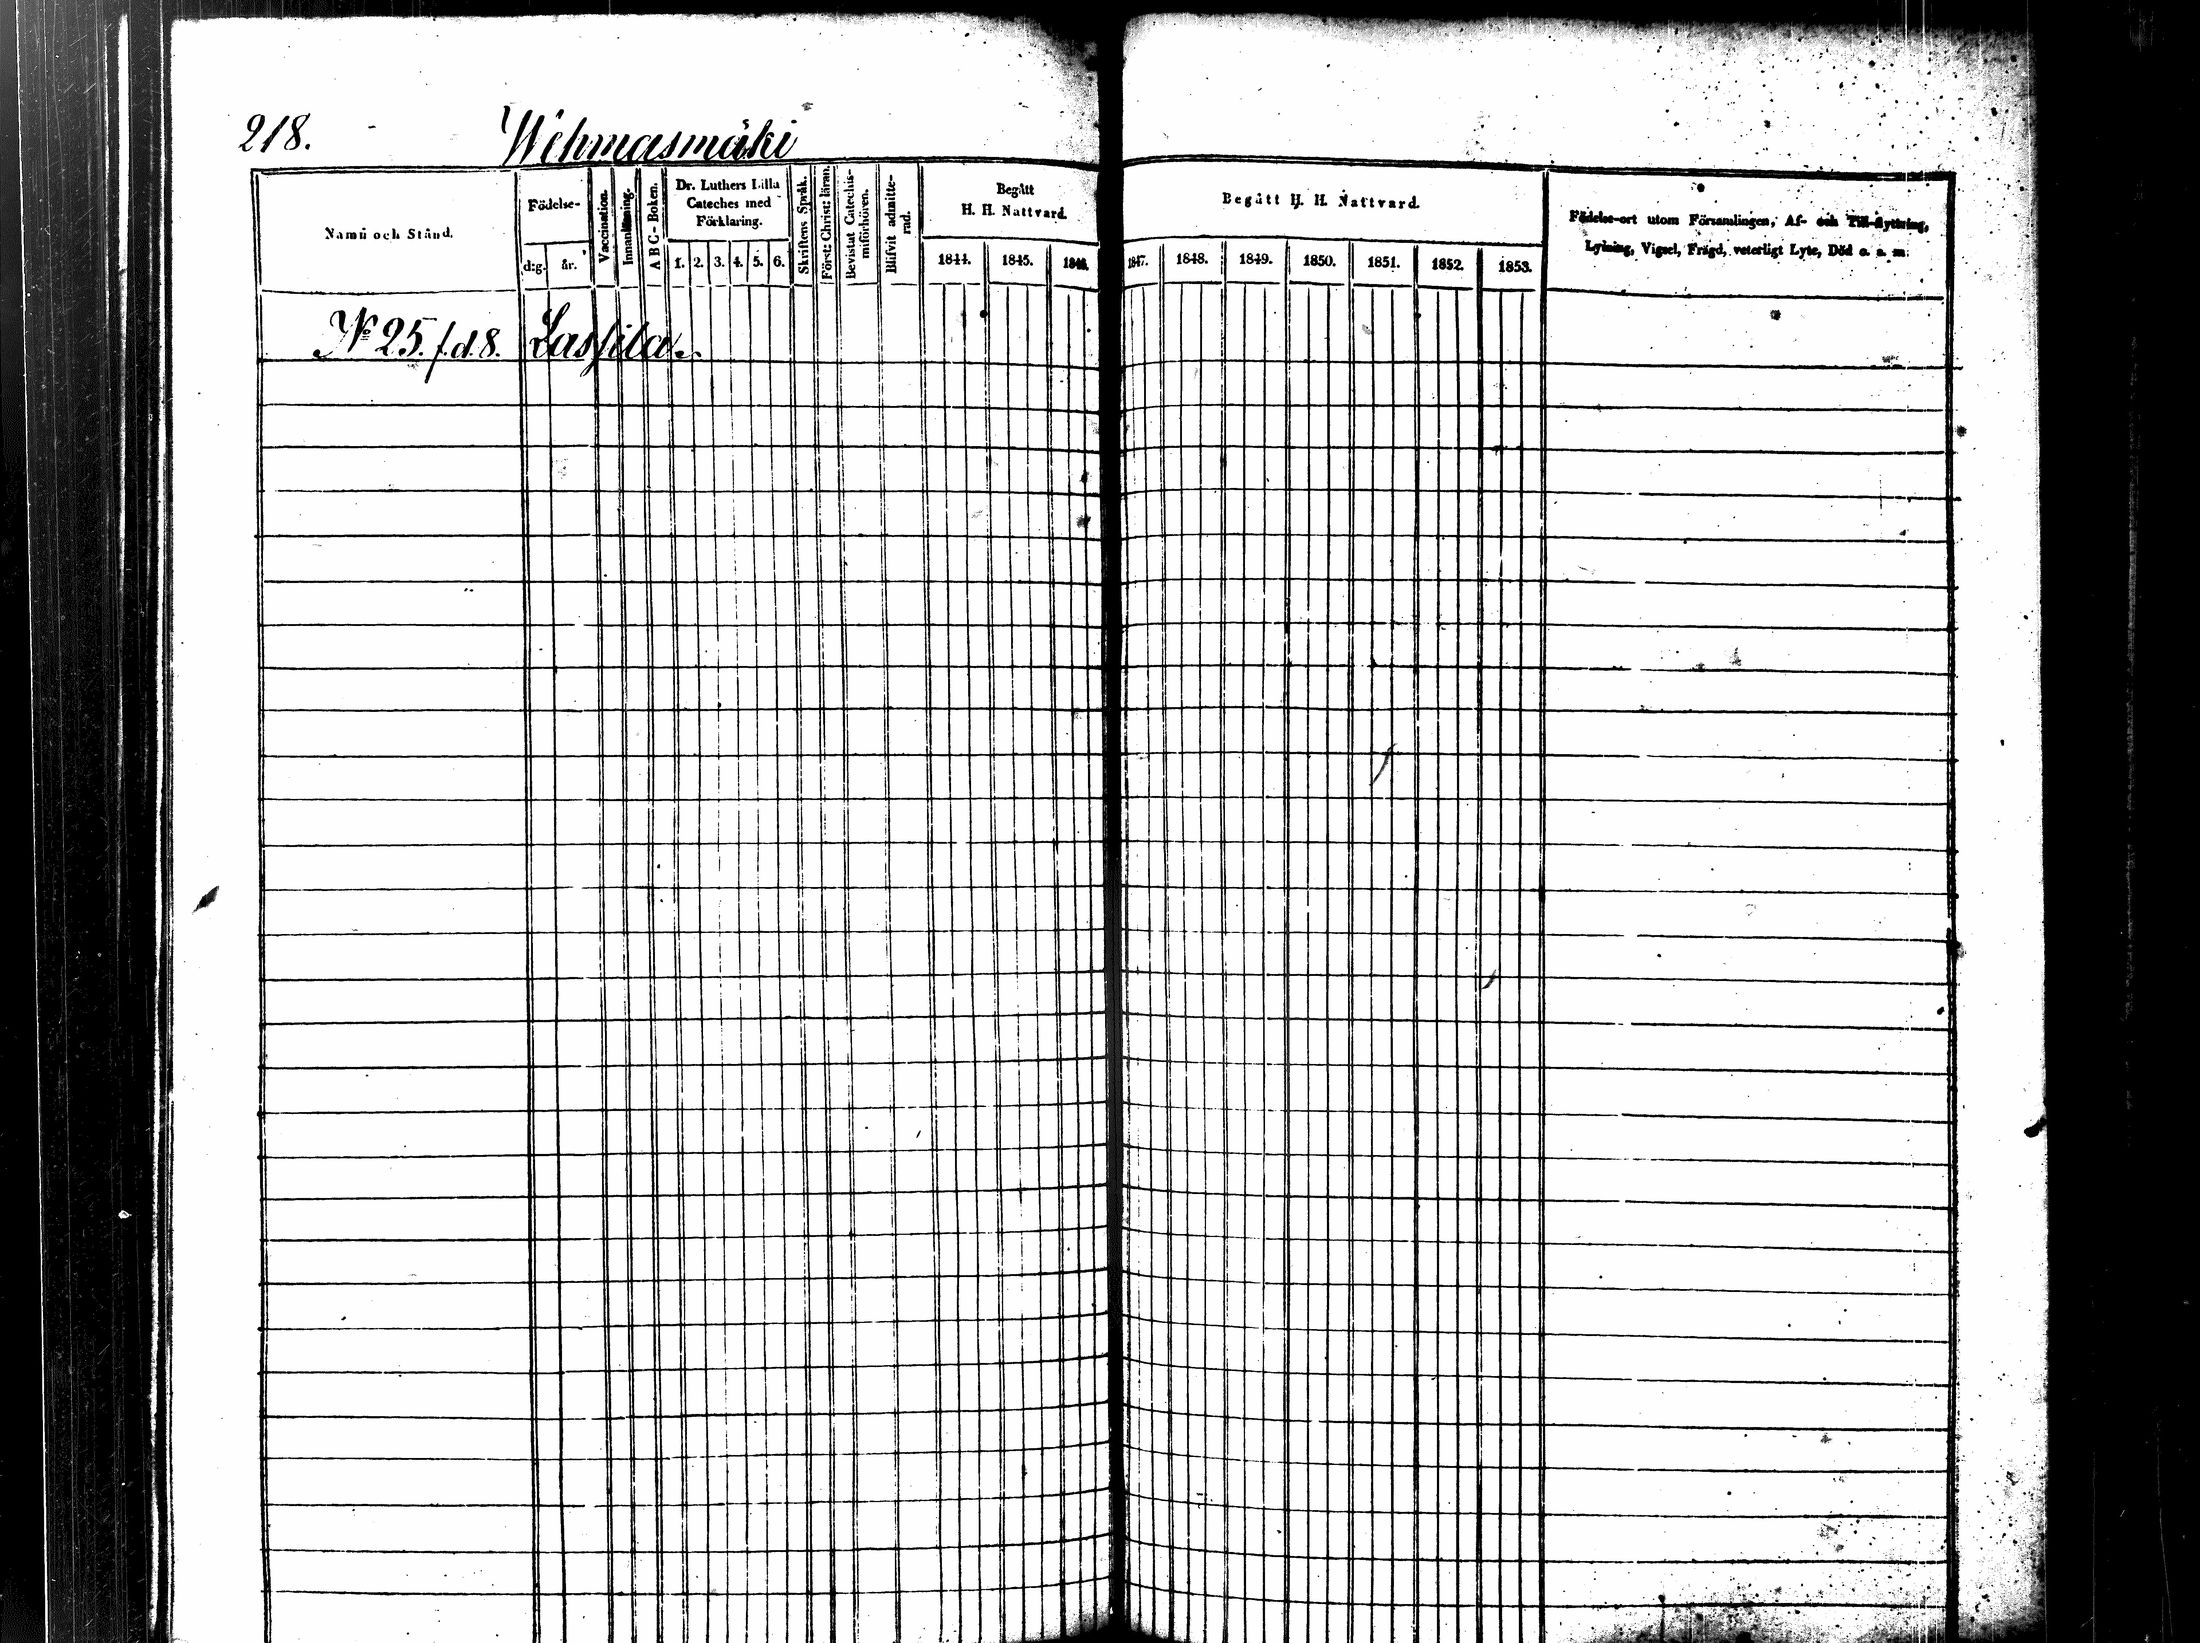 218. Wihmasmäki
Namn och Stånd.
Födelse-
d:g. år.
Vaccination.
Innanläsning.
A B C - Boken.
Dr. Luthers Lilla
Cateches med
Förklaring.
1. 2. 3. 4. 5. 6.
Skriftens Språk.
Först: Christ: läran.
Bevistat Catechis-
miförhören.
Blifvit admitte-
rad.
Begått
H. H. Nattvard.
1844. 1845. 1846.
Begått H. H. Nattvard.
1847. 1848. 1849. 1850. 1851. 1852. 1853.
Födelse-ort utom Församlingen, Af- och Till-flyttning,
Lysning, Vigsel, Frägd, veterligt Lyte, Död o. s. m.
No 25. f.d. 8. Lassila.